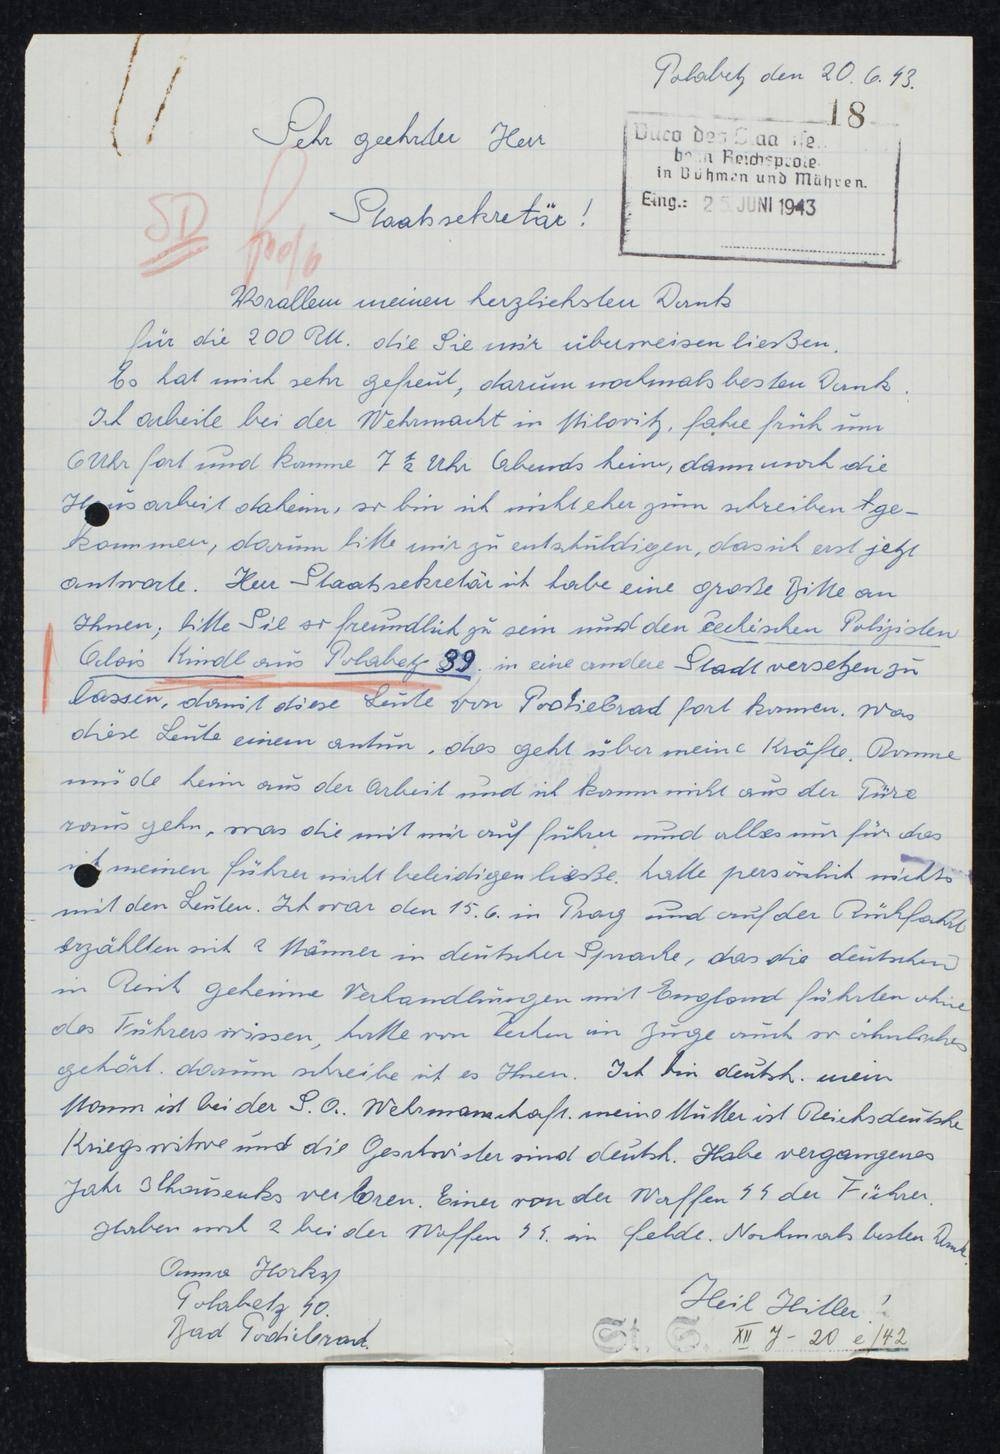 Polabetz den 20. 6. 43.
18
Sehr geehrter Herr
Büro des Staatsse
beim Reichsprote
in Böhmen und Mähren.
Eing.: 25. JUNI 1943
SD
Staatssekretär!
Vorallem meinen herzlichsten Dank
für die 200 RM. die Sie mir überweisen ließen.
Es hat mich sehr gefreut, darum nochmals besten Dank.
Ich arbeite bei der Wehrmacht in Milovitz, fahre früh um
6 Uhr fort und komme 7 ½ Uhr Abends heim, dann noch die
Hausarbeit daheim, so bin ich nicht eher zum schreiben ge-
kommen, darum bitte mir zu entschuldigen, das ich erst jetzt
antworte. Herr Staatssekretär ich habe eine große Bitte an
Ihnen, bitte Sie so freundlich zu sein und den čechischen Polizisten
Alois Kindl aus Polabetz 39. in eine andere Stadt versetzen zu
lassen, damit diese Leute von Podiebrad fort kommen. Was
diese Leute einem antun, das geht über meine Kräfte. Komme
müde heim aus der Arbeit und ich kann nicht aus der Türe
raus gehn, was die mit mir auf führen und alles nur für das
ich meinen Führer nicht beleidigen ließe. hatte persönlich nichts
mit den Leuten. Ich war den 15. 6. in Prag und auf der Rückfahrt
erzählten sich 2 Männer in deutscher Sprache, das die deutschen
in Reich geheime Verhandlungen mit England führten ohne
des Führers wissen, hatte von Čechen im Zuge auch so ähnliches
gehört. darum schreibe ich es Ihnen. Ich bin deutsch. mein
Mann ist bei der S. A. Wehrmannschaft. meine Mutter ist Reichsdeutsche
Kriegswitwe und die Geschwister sind deutsch. Habe vergangenes
Jahr 3 verloren. Einer von der Waffen SS der Führer.
Haben noch 2 bei der Waffen SS. im felde. Nochmals besten Dank.
Anna Horky
Polabetz 40.
Bad Podiebrad.
Heil Hitler!
St. S. XII J - 20 e/42